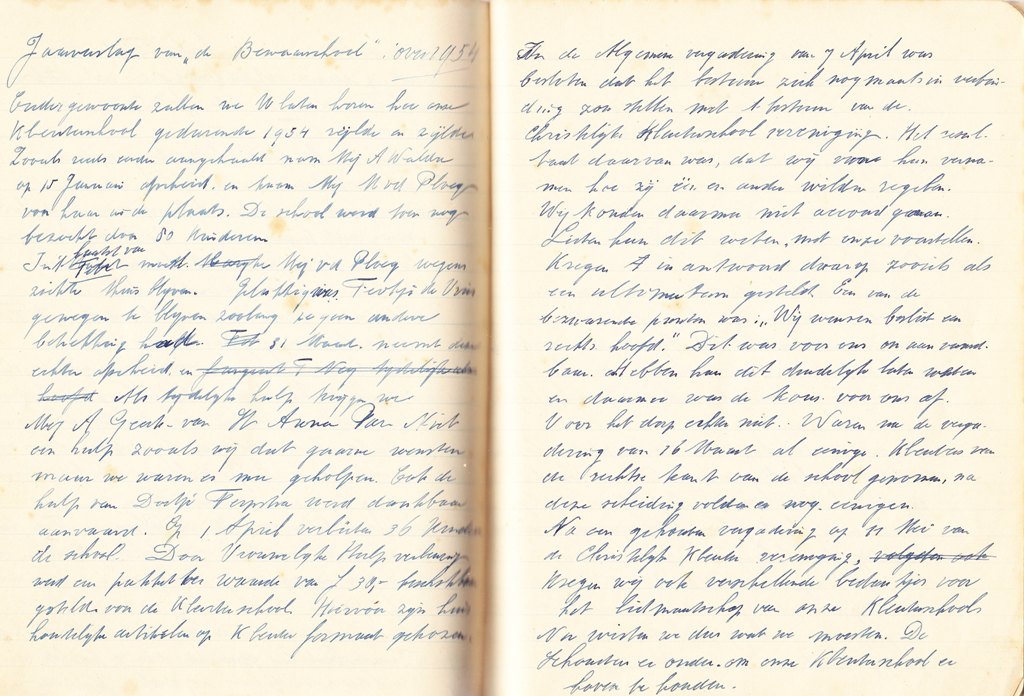 Jaarverslag van "de Bewaarschool" over 1954
Oudergewoonte zullen we U laten horen hoe onze
Kleuterschool gedurende 1954 reilde en zeilde
Zooals reeds eerder aangehaald nam Mej A Walda
op 15 Januari afscheid. en kwam Mej M v d Ploeg
voor haar in de plaats. De school werd toen nog
bezocht door 80 kinderen
laatst van
Febr moest Mej v d Ploeg wegens
ziekte thuis blijven. Gelukkig was Feotje de Vries
genegen te blijven zoolang we geen andere
betrekking hadd. Tot 31 Maart. neemt deze
echter afscheid. en fungeert T Ney tydelijk als
hoofd Als tydelyke hulp kregen we
Mej A Geerts van St Anna Par. Niet
een hulp zooals wij dat gaarne wensten
maar we waren er mee geholpen. Ook de
hulp van Doetje Terpstra werd dankbaar
aanvaard. Op 1 April verlieten 36 kinderen
de school. Door Vrouwelyke Hulp verleening
werd een pakket ter waarde van f 30,- beschikbaar
gesteld voor de Kleuterschool. Hiervoor zijn
houtelyke artikelen op Kleuter formaat gekozen.
In de Algemene vergadering van 7 April was
besloten dat het bestuur zich nogmaals in verbin-
ding zou stellen met 't bestuur van de
Christelijke Kleuterschool vereeniging. Het resul-
taat daarvan was, dat wij van hen verna-
men hoe zij één en ander wilden regelen.
Wij konden daarmee niet accoord gaan.
Lieten hun dit weten, met onze voorstellen.
Kregen 7 in antwoord daarop zooiets als
een ultimatum gesteld. Een van de
bezwarende punten was: "Wij wensen beslist een
rechts. hoofd." Dit was voor ons onaanvaard-
baar. Hebben hun dit duidelijk laten weten
en daarmee was de kous voor ons af.
Voor het dorp echter niet. Waren na de verga-
dering van 16 Maart al eenige Kleuters van
de rechtse kant van de school genomen, na
deze scheiding volden er nog eenigen.
Na een gehouden vergadering op 11 Mei van
de Christelijk Kleuter vereeniging, volgden ook
Kregen wij ook verschillende bedankjes voor
het lidmaatschap van onze Kleuterschool
Nu wisten we dus wat we moesten. De
schouders er onder. om onze Kleuterschool er
boven te houden.